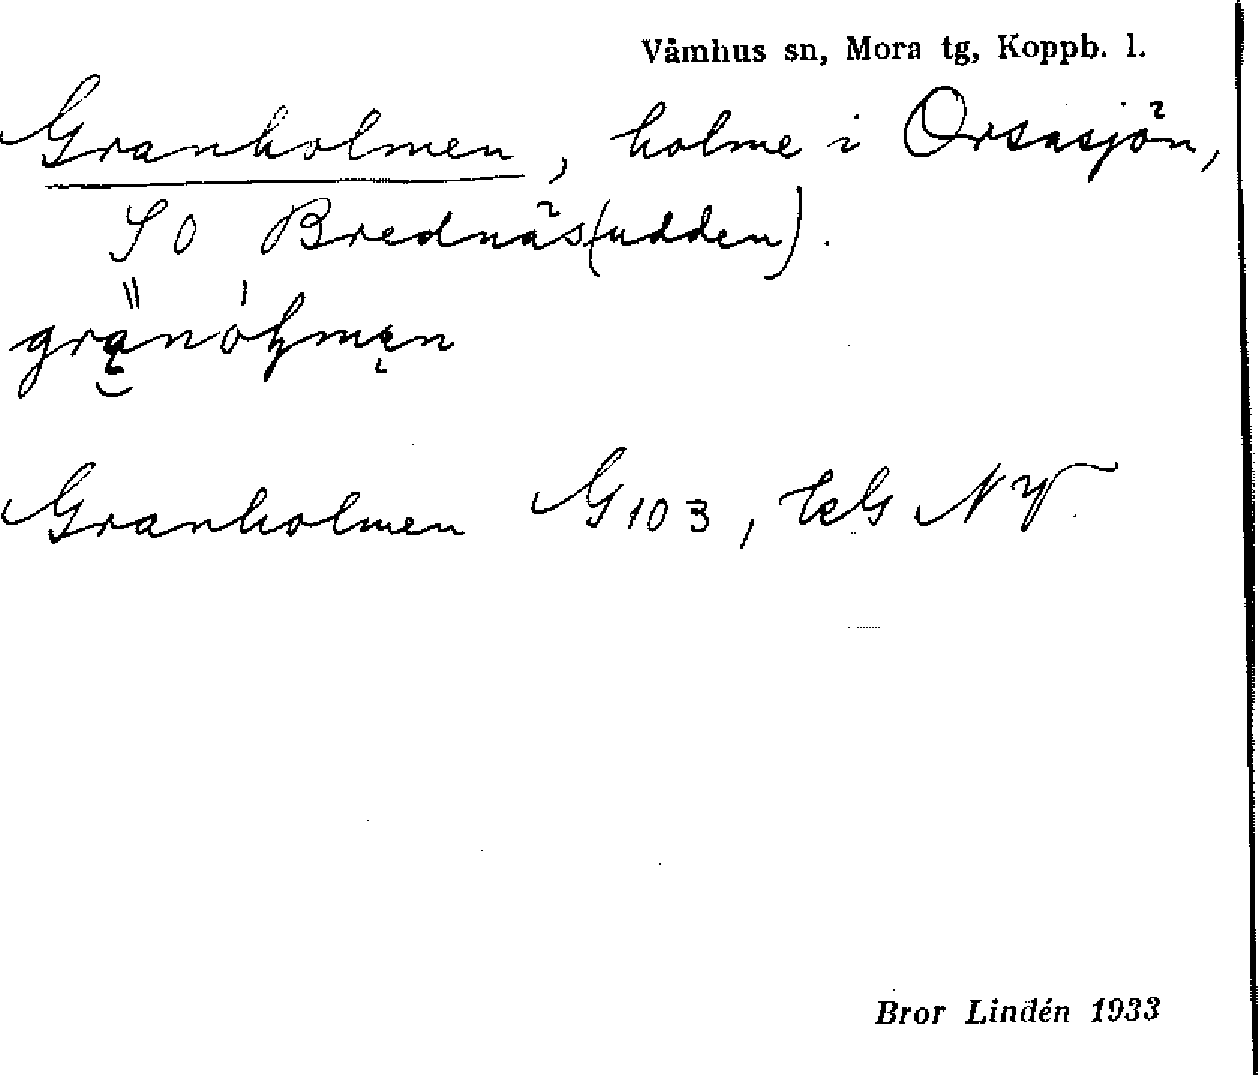 Våmhus sn, Mora tg, Koppb. l.
Granholmen, holme i Orsasjön,
SO Brednäs(udden).
Granholmen G 103, NV
Bror Lindén 1933